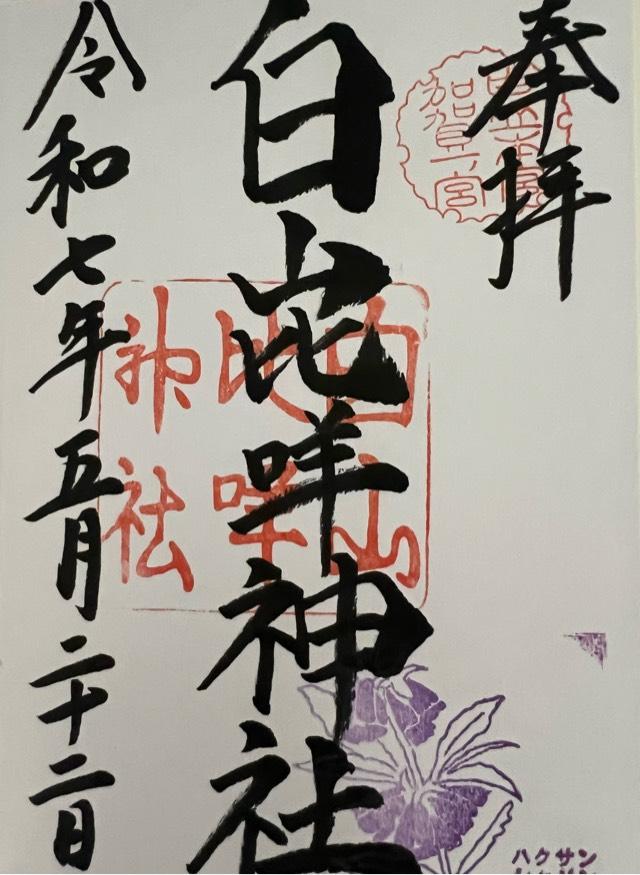 奉拝
加賀一ノ宮
白山比咩神社
白山
比咩
神社
令和七年五月二十二日
ハクサン